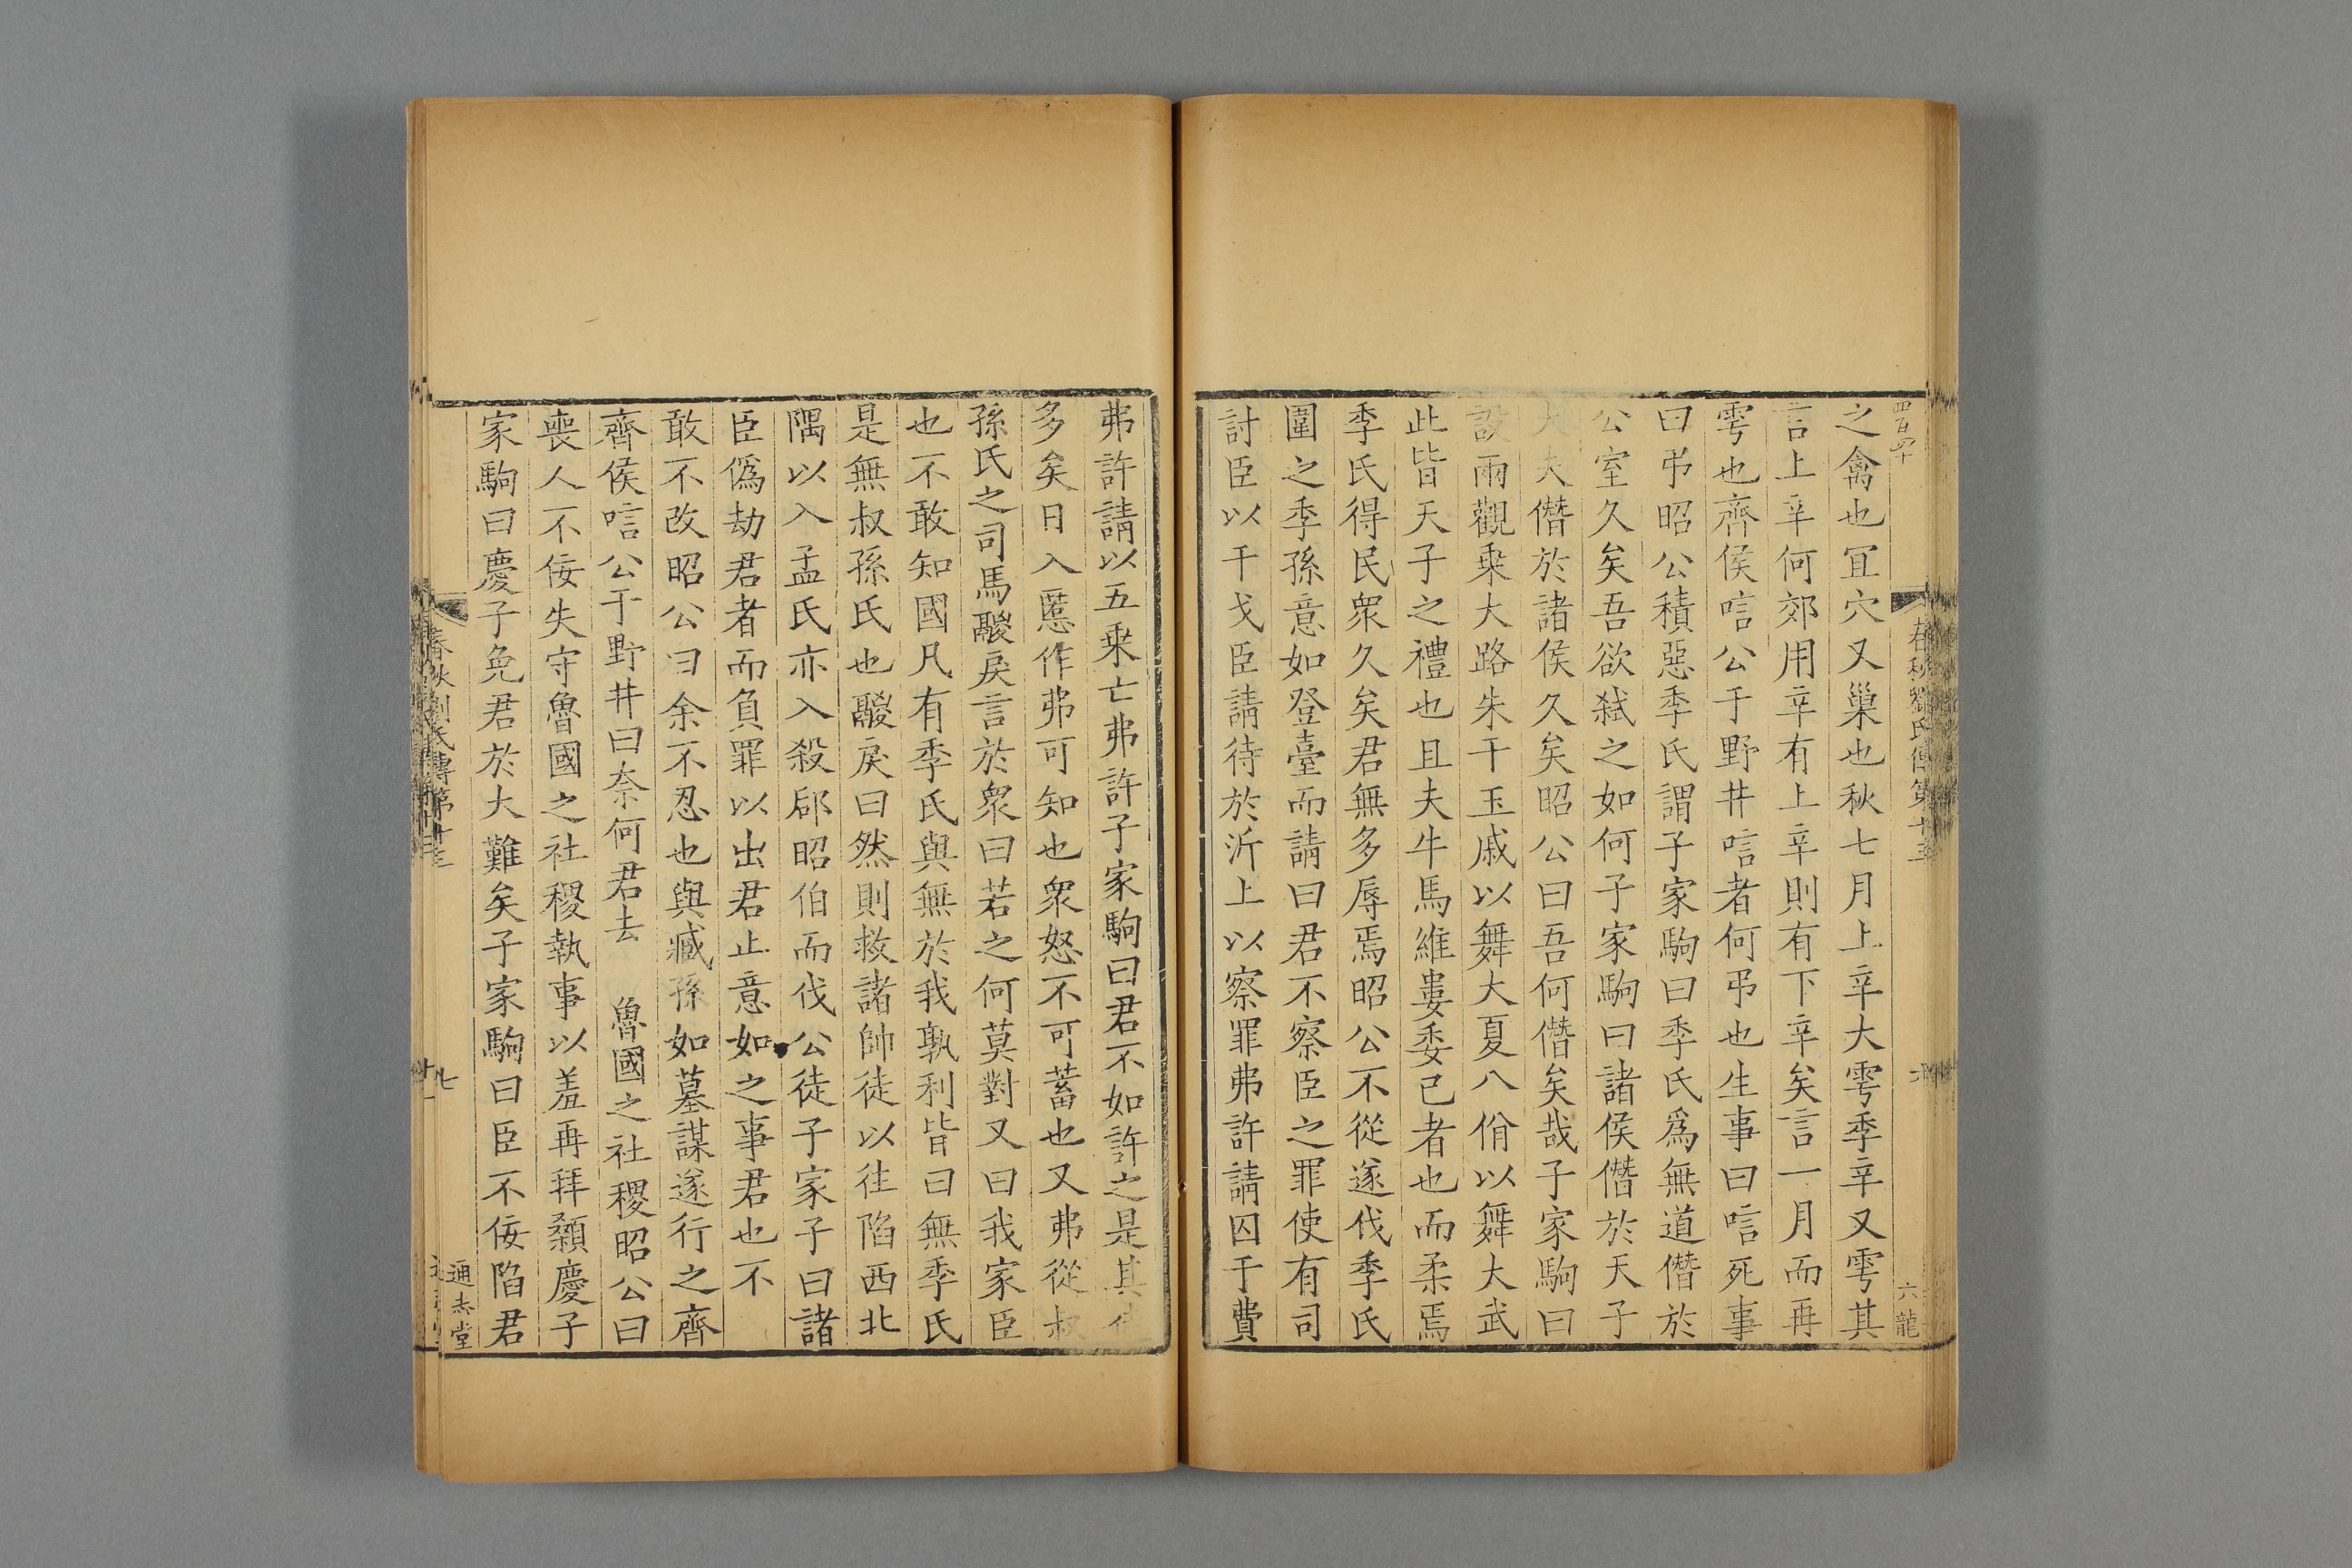 四百四十
之禽也冝穴又巢也秋七月上辛大雩季辛又雩其
言上辛何郊用辛有上辛則有下辛矣言一月而再
雩也齊侯唁公于野井唁者何弔也生事曰唁死事
曰弔昭公積惡季氏謂子家駒曰季氏爲無道僭於
公室久矣吾欲弑之如何子家駒曰諸侯僭於天子
大夫僭於諸侯久矣昭公曰吾何僭矣哉子家駒曰
設兩觀乗大路朱干玉戚以舞大夏八佾以舞大武
此皆天子之禮也且夫牛馬維婁委己者也而柔焉
季氏得民衆久矣君無多辱焉昭公不從遂伐季氏
圍之季孫意如登臺而請曰君不察臣之罪使有司
討臣以干戈臣請待於沂上以察罪弗許請囚于費
春秋劉氏傳第十三
六龍
弗許請以五乗亡弗許子家駒曰君不如許之是其
多矣日入慝作弗可知也衆怒不可蓄也又弗從叔
孫氏之司馬鬷戾言於衆曰若之何莫對又曰我家臣
也不敢知國凡有季氏與無於我孰利皆曰無季氏
是無叔孫氏也鬷戾曰然則救諸帥徒以往陷西北
隅以入孟氏亦入殺郈昭伯而伐公徒子家子曰諸
臣僞劫君者而負罪以出君止意如之事君也不
敢不改昭公曰余不忍也與臧孫如墓謀遂行之齊
齊侯唁公于野井曰奈何君去 魯國之社稷昭公曰
喪人不佞失守魯國之社稷執事以羞再拜顙慶子
家駒曰慶子免君於大難矣子家駒曰臣不佞陷君
春秋劉氏傳第十三
通志堂